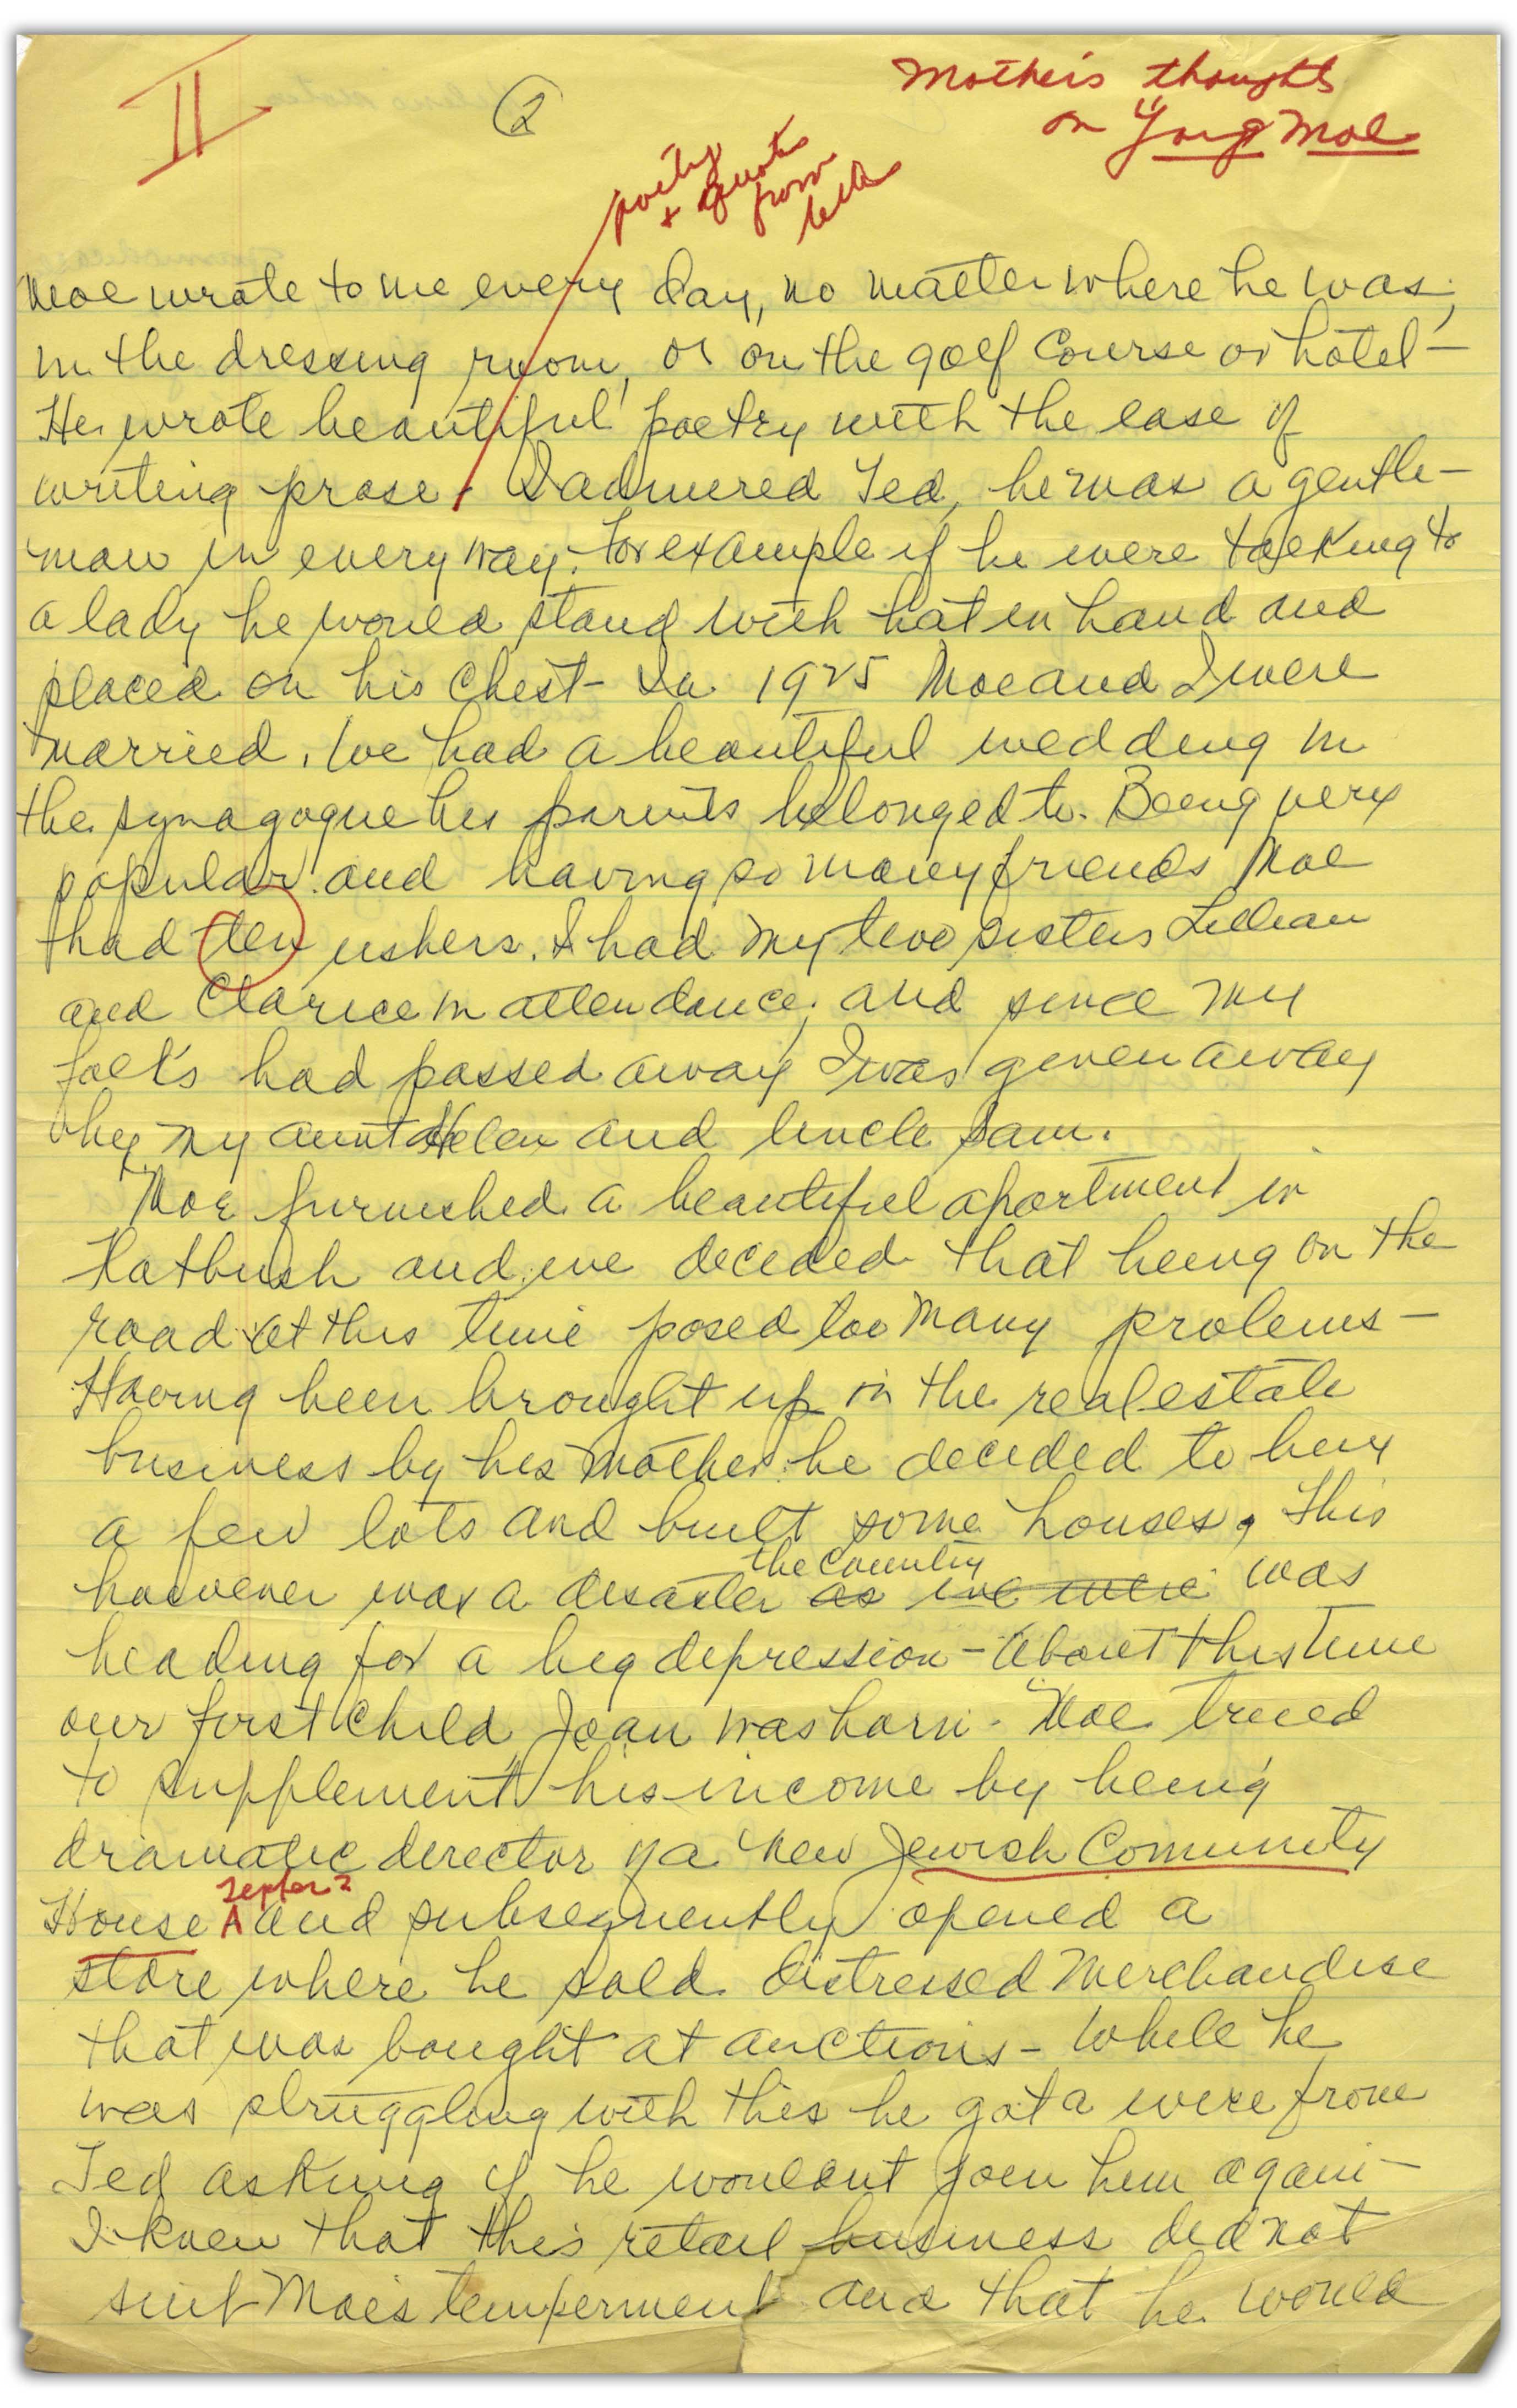 II
2
Mother's thoughts
on "Young Moe
poetry
+ quotes
from
letters
Moe wrote to me every day, no matter where he was,
in the dressing room, or on the golf course or hotel -
He wrote beautiful poetry with the ease of
writing prose. I admired Ted, he was a gentle-
man in every way. For example if he were talking to
a lady he would stand with hat in hand and
placed on his chest - In 1925 Moe and I were
married. We had a beautiful wedding in
the synagogue his parents belonged to. Being very
popular and having so many friends Moe
had ten ushers. I had my two sisters Lillian
and Clarice in attendance, and since my
folk's had passed away I was given away
by my aunt Helen and Uncle Sam.
Moe furnished a beautiful apartment in
Flatbush and we decided that being on the
road at this time posed too many prolems -
Having been brought up in the real estate
business by his mother he decided to buy
a few lots and built some houses. This
the country
however was a disaster as we were was
heading for a big depression - About this time
our first child Joan was born - Moe tried
to supplement his income by being
dramatic director of a new Jewish Comunity
House and subsequently opened a
store where he sold distressed merchandise
that was bought at auctions - While he
was struggling with this he got a wire from
Ted asking if he wouldnt join him again -
I knew that this retail business did not
suit Moe's temperment and that he would